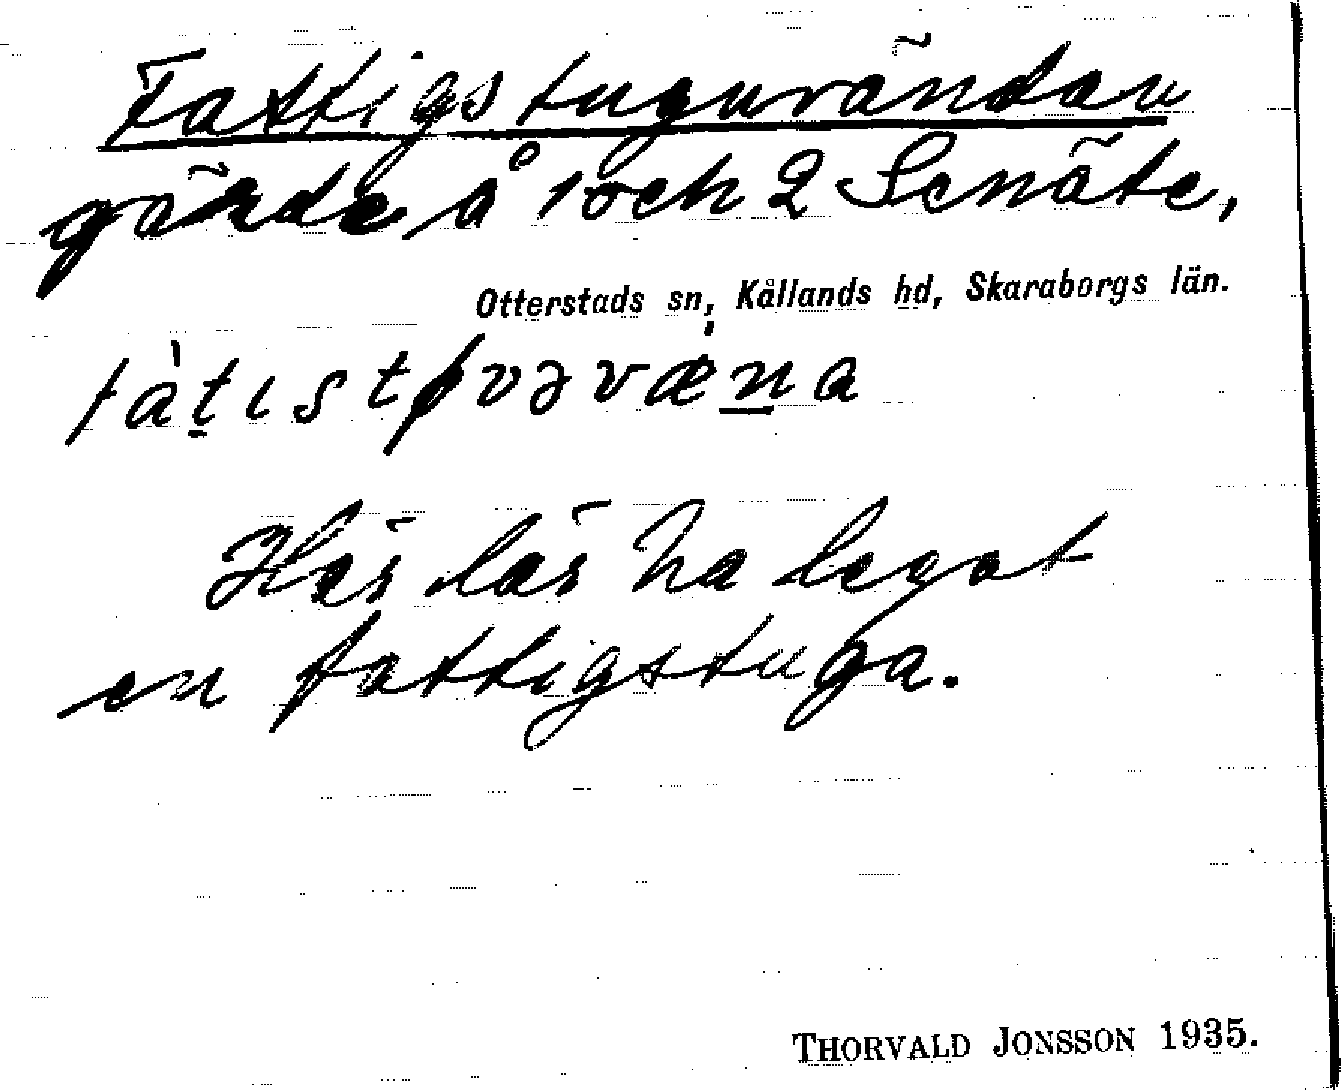 Fattigstuguvändan
gärde å 1 och 2 Senäte,
Otterstads sn, Kållands hd, Skaraborgs län.
fàtıstøvəvæ̀na
Här lär ha legat
en fattigstuga.
THORVALD JONSSON 1935.